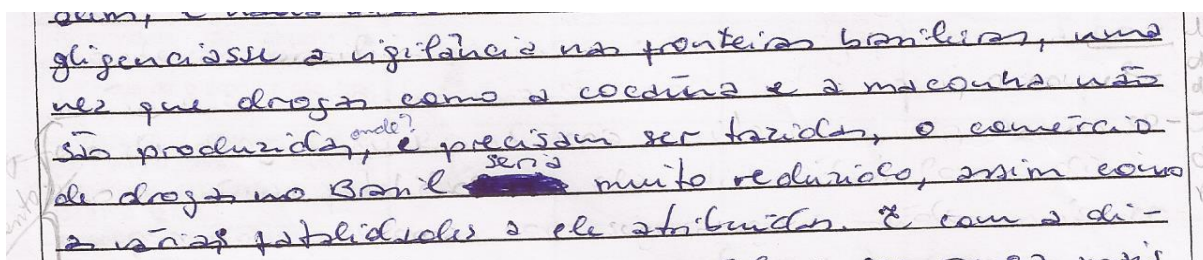 gligenciasse a vigilância nas fronteiras brasileiras, uma
vez que drogas como a cocaína e a maconha não
são produzidas, onde? e precisam ser trazidas, o comércio
de drogas no Brasil seria muito reduzido, assim como
as várias fatalidades a ele atribuídas. E com a di-